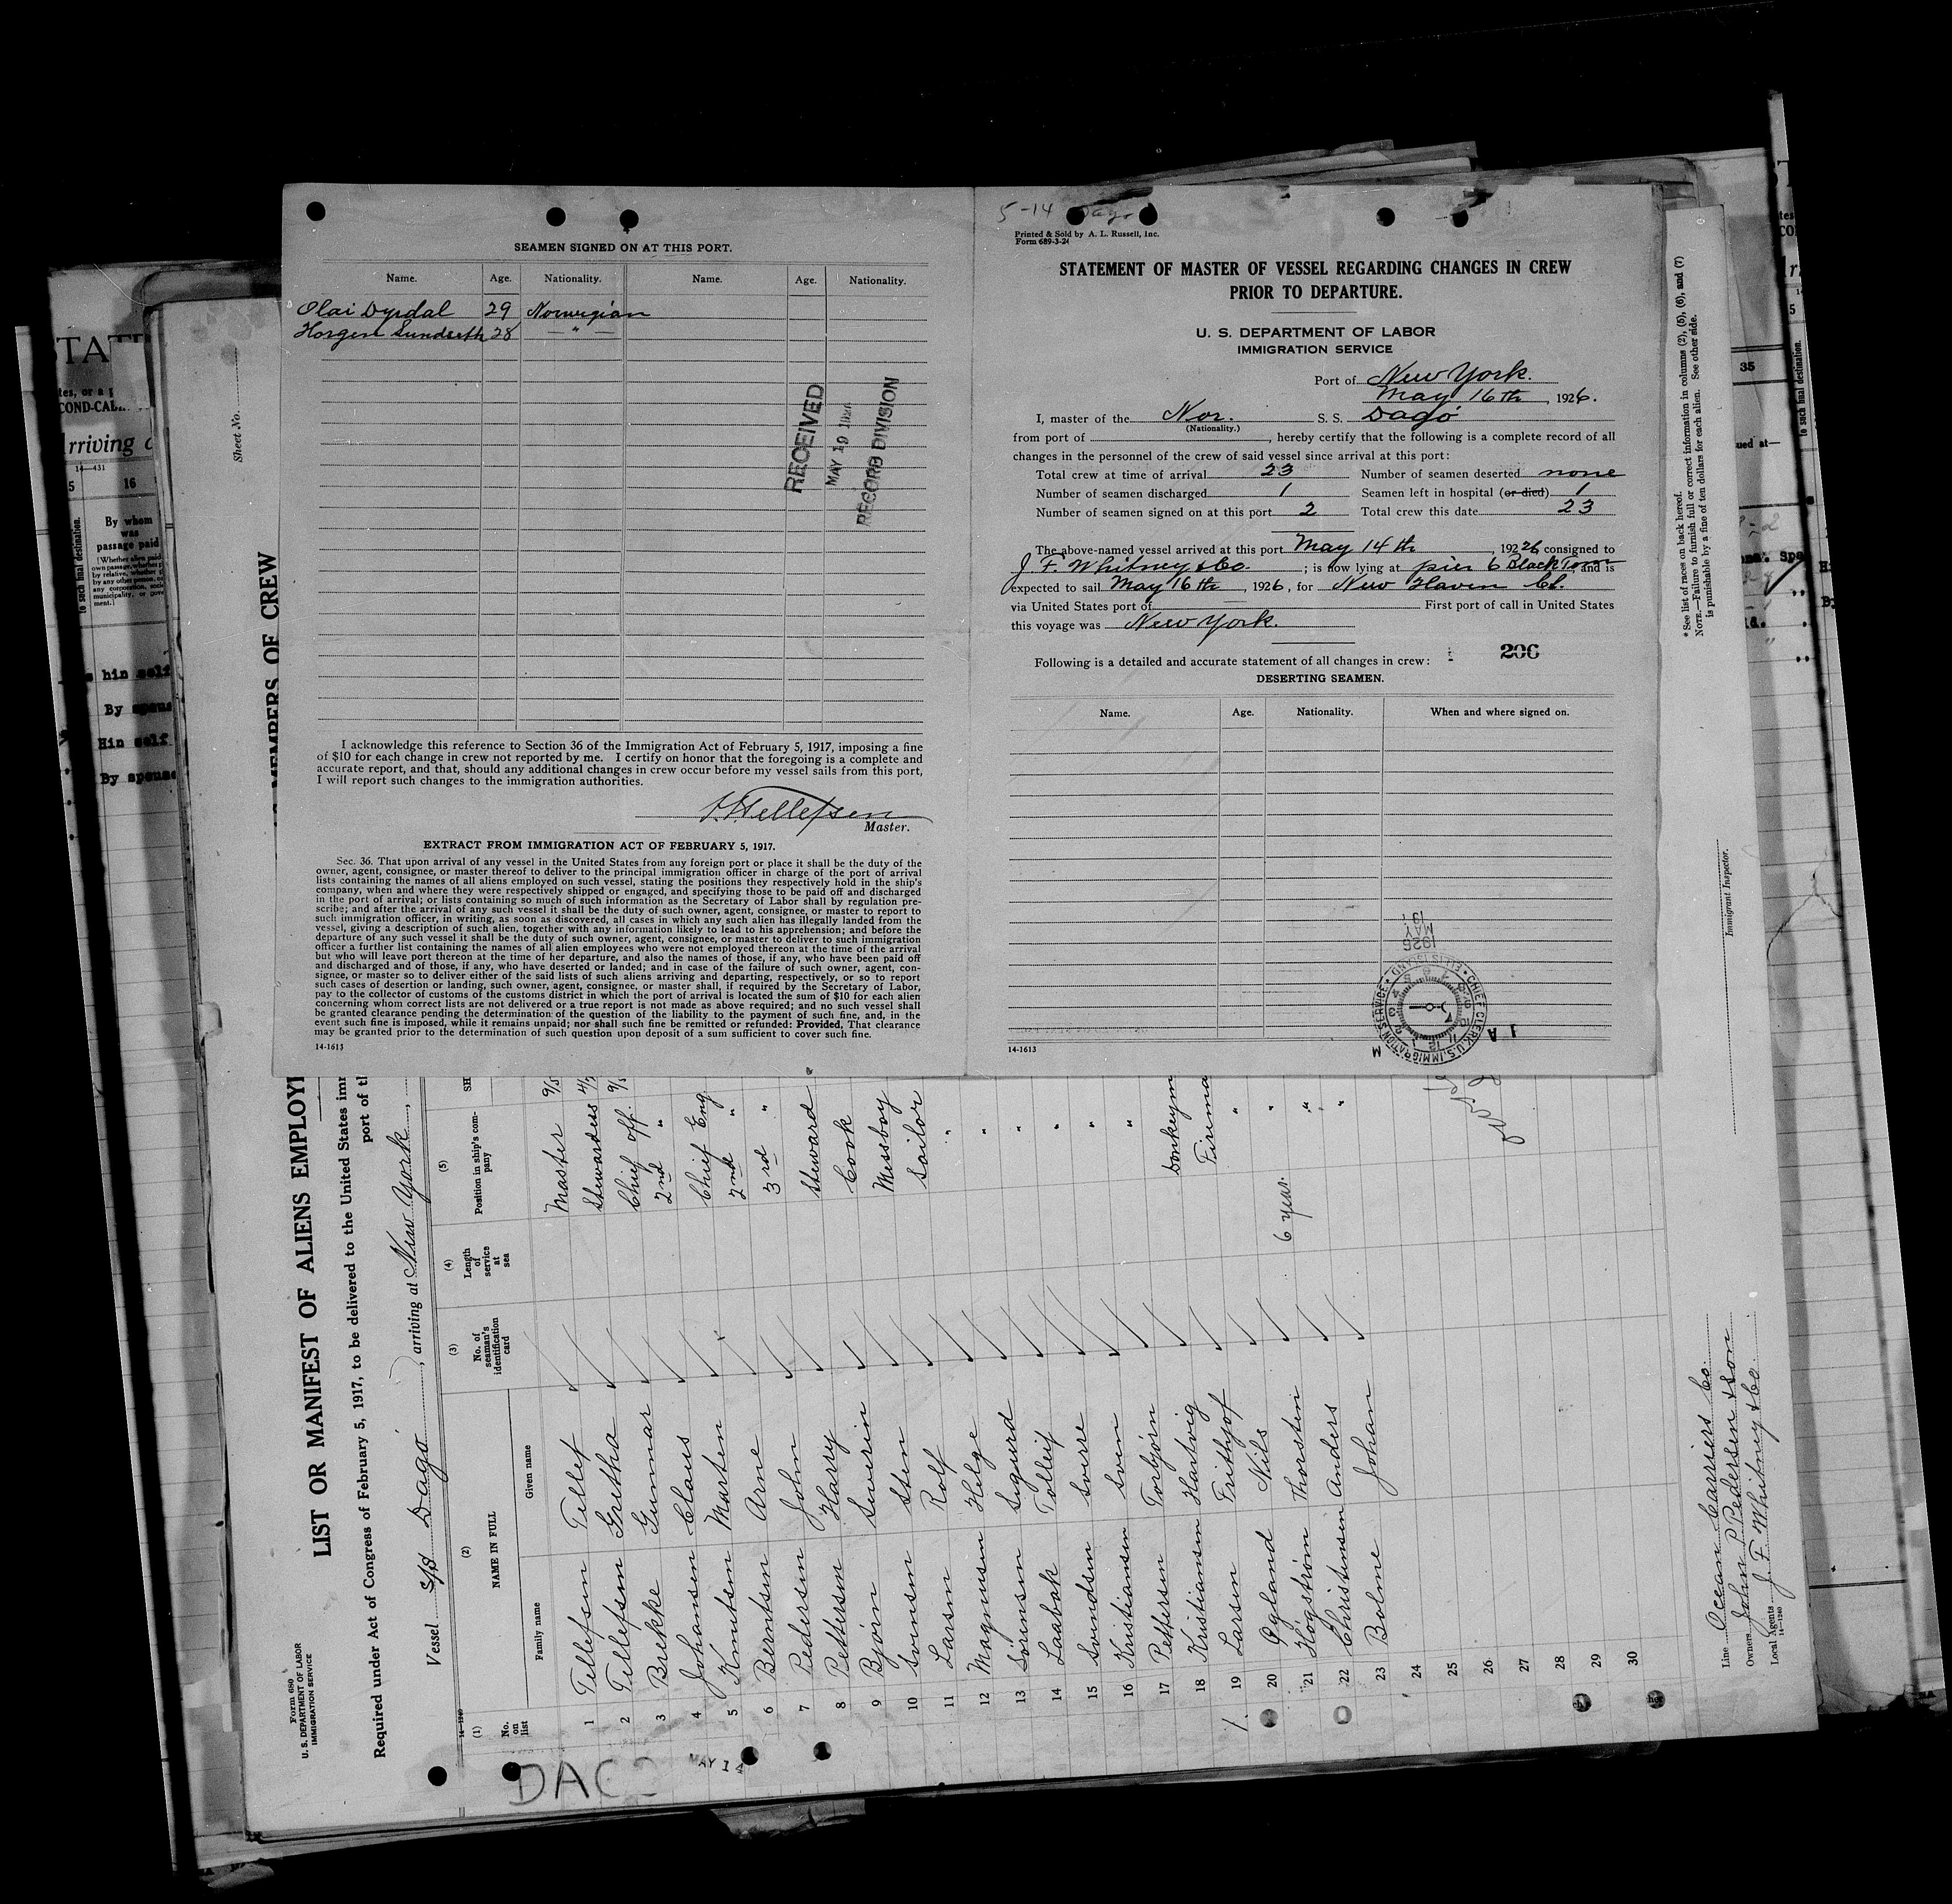 SEAMEN SIGNED ON AT THIS PORT.
Name. Age. Nationality. Name. Age. Nationality.
Olai Dyrdal 29 Norwegian
Horgen Sundseth 28 — " —
RECEIVED
MAY 19 1926
RECORD DIVISION
I acknowledge this reference to Section 36 of the Immigration Act of February 5, 1917, imposing a fine
of $10 for each change in crew not reported by me. I certify on honor that the foregoing is a complete and
accurate report, and that, should any additional changes in crew occur before my vessel sails from this port,
I will report such changes to the immigration authorities.
Tellefsen
Master.
EXTRACT FROM IMMIGRATION ACT OF FEBRUARY 5, 1917.
Sec. 36. That upon arrival of any vessel in the United States from any foreign port or place it shall be the duty of the
owner, agent, consignee, or master thereof to deliver to the principal immigration officer in charge of the port of arrival
lists containing the names of all aliens employed on such vessel, stating the positions they respectively hold in the ship's
company, when and where they were respectively shipped or engaged, and specifying those to be paid off and discharged
in the port of arrival; or lists containing so much of such information as the Secretary of Labor shall by regulation pre-
scribe; and after the arrival of any such vessel it shall be the duty of such owner, agent, consignee, or master to report to
such immigration officer, in writing, as soon as discovered, all cases in which any such alien has illegally landed from the
vessel, giving a description of such alien, together with any information likely to lead to his apprehension; and before the
departure of any such vessel it shall be the duty of such owner, agent, consignee, or master to deliver to such immigration
officer a further list containing the names of all alien employees who were not employed thereon at the time of the arrival
but who will leave port thereon at the time of her departure, and also the names of those, if any, who have been paid off
and discharged and of those, if any, who have deserted or landed; and in case of the failure of such owner, agent, con-
signee, or master so to deliver either of the said lists of such aliens arriving and departing, respectively, or so to report
such cases of desertion or landing, such owner, agent, consignee, or master shall, if required by the Secretary of Labor,
pay to the collector of customs of the customs district in which the port of arrival is located the sum of $10 for each alien
concerning whom correct lists are not delivered or a true report is not made as above required; and no such vessel shall
be granted clearance pending the determination of the question of the liability to the payment of such fine, and, in the
event such fine is imposed, while it remains unpaid; nor shall such fine be remitted or refunded: Provided, That clearance
may be granted prior to the determination of such question upon deposit of a sum sufficient to cover such fine.
14-1613
5-14 Dago
Printed & Sold by A. L. Russell, Inc.
Form 689-3-24
STATEMENT OF MASTER OF VESSEL REGARDING CHANGES IN CREW
PRIOR TO DEPARTURE.
U. S. DEPARTMENT OF LABOR
IMMIGRATION SERVICE
Port of New York.
May 16th, 1926.
I, master of the Nor. S. S. Dagö
(Nationality.)
from port of , hereby certify that the following is a complete record of all
changes in the personnel of the crew of said vessel since arrival at this port:
Total crew at time of arrival 23 Number of seamen deserted none
Number of seamen discharged 1 Seamen left in hospital (or died) 1
Number of seamen signed on at this port 2 Total crew this date 23
The above-named vessel arrived at this port May 14th, 1926 consigned to
J. F. Whitney & Co. ; is now lying at pier 6 Black Tom, and is
expected to sail May 16th, 1926, for New Haven Ct.
via United States port of First port of call in United States
this voyage was New York.
206
Following is a detailed and accurate statement of all changes in crew:
DESERTING SEAMEN.
Name. Age. Nationality. When and where signed on.
1926
MAY
CHIEF CLERK, U.S. IMMIGRATION SERVICE • ELLIS ISLAND •
14-1613
Form 680
U. S. DEPARTMENT OF LABOR
IMMIGRATION SERVICE
Sheet No.
LIST OR MANIFEST OF ALIENS EMPLOY
MEMBERS OF CREW
Required under Act of Congress of February 5, 1917, to be delivered to the United States imm
port of th
Vessel S/S Dagö, arriving at New York,
(1) (2) (3) (4) (5)
No. on list NAME IN FULL No. of seaman's identification card Length of service at sea Position in ship's company SH
Family name Given name
1 Tellefsen Tellef Master
2 Tellefsen Gretha Stewardess
3 Brekke Gunnar Chief off.
4 Johansen Claus 2nd "
5 Knutsen Marten Chief Eng
6 Berntsen Arne 2nd "
7 Pedersen John 3rd "
8 Pettersen Harry Steward
9 Bjørn Severin Cook
10 Svensen Sten Messboy
11 Larsen Rolf Sailor
12 Magnusen Helge "
13 Sörensen Sigurd "
14 Laabak Tolleif "
15 Svendsen Sverre "
16 Kristiansen Sven "
17 Pettersen Torbjörn "
18 Kristiansen Hartvig Donkeym
19 Larsen Frithjof Firema
20 Ogland Nils "
21 Högström Thorsten 6 years. "
22 Christensen Anders "
23 Bolme Johan "
24
25
26
27
28
29
30
DAGO
MAY 14
Line Ocean Carriers Co.
Owners John P Pedersen & Son
Local Agents J. F. Whitney & Co.
14—1240
Immigrant Inspector.
* See list of races on back hereof.
NOTE.—Failure to furnish full or correct information in columns (2), (5), (6), and (7)
is punishable by a fine of ten dollars for each alien. See other side.
14—431
16
By whom
was
passage paid
hin self
By spouse
Hin self
By spouse
35